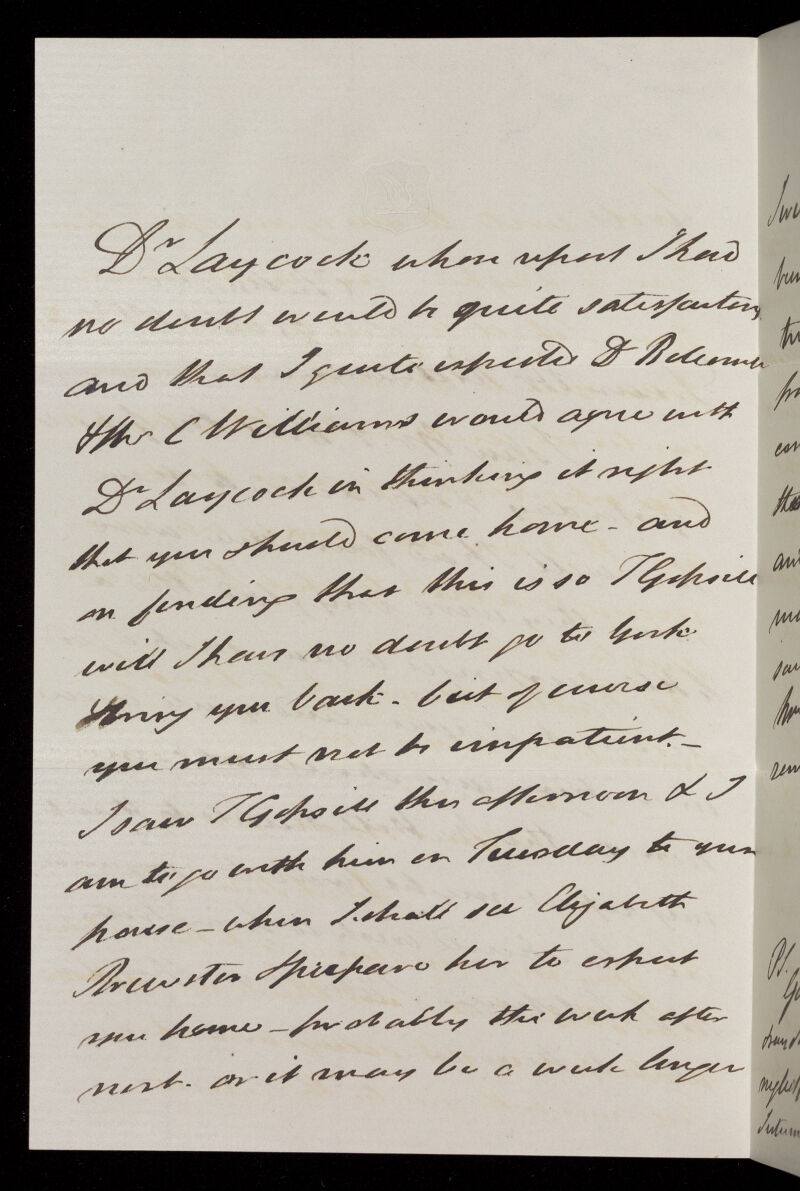 Dr Laycock whose report I had
no doubt would be quite satisfactory
and that I quite expected Dr Belcombe
& Mr C Williams would agree with
Dr Laycock in thinking it right
that you should come home - and
on finding that this is so T Gopsill
will I have no doubt go to York
& bring you back - but of course
you must not be impatient. -
I saw T Gopsill this afternoon & I
am to go with him on Tuesday to your
house - when I shall see Elizabeth
Brewster & prepare her to expect
you home - probably the week after
next - or it may be a week longer
PS.